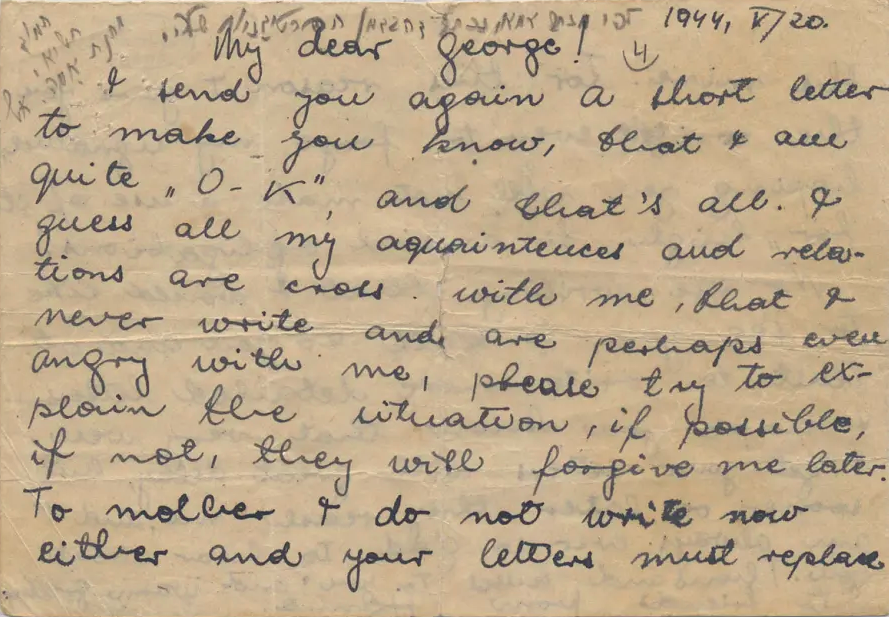 1944, V/20.
My dear George! 4
I send you again a short letter
to make you know, that I am
quite „O-K”, and that's all. I
guess all my aquaintences and rela-
tions are cross with me, that I
never write and are perhaps even
angry with me, please try to ex-
plain the situation, if possible,
if not, they will forgive me later.
To mother I do not write now
either and your letters must replace